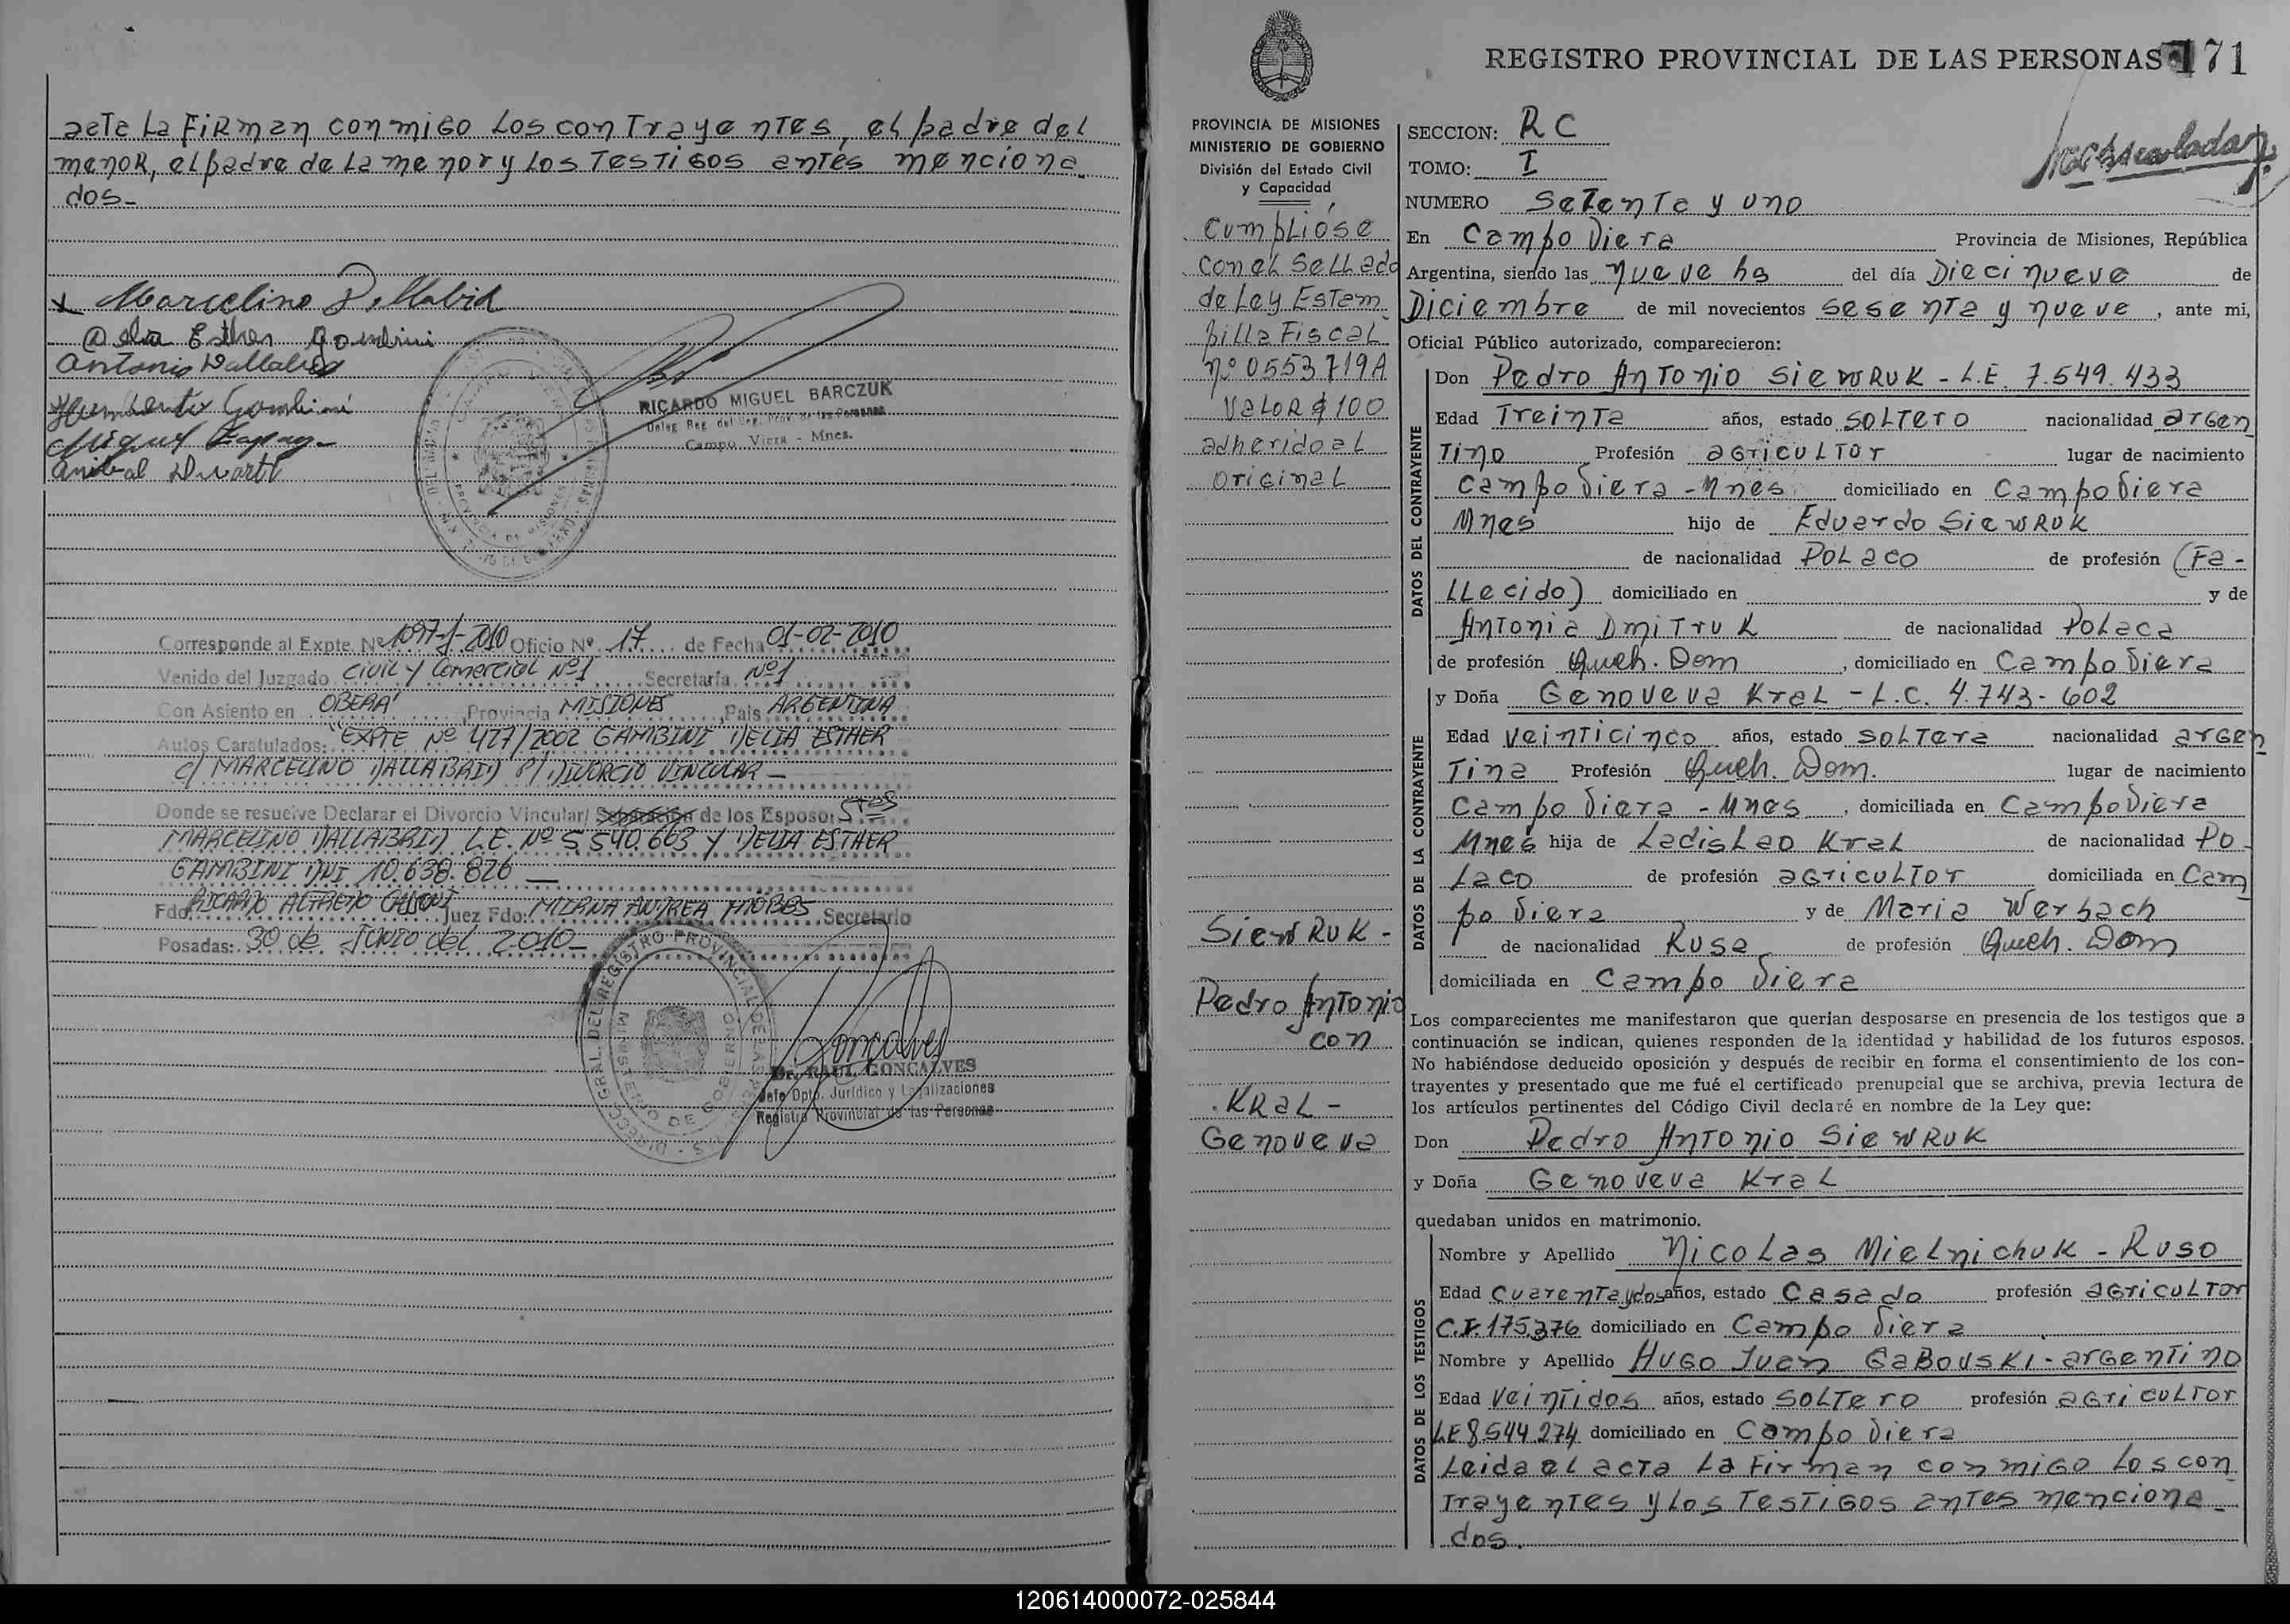 acta la firman conmigo los contrayentes, el padre del
menor, el padre de la menor y los testigos antes menciona_
dos-
x Marcelino Dallabrid
Delia Esther Gambini
Antonio Dallabrid
Humberto Gambini
Miguel
Anibal Duarte
RICARDO MIGUEL BARCZUK
Campo Viera - Mnes.
Corresponde al Expte. Nº 1097-J-2010 Oficio Nº 17 de Fecha 01-02-2010
Venido del Juzgado Civil y Comercial Nº1 Secretaría Nº1
Con Asiento en OBERA' ,Provincia MISIONES ,Pais ARGENTINA
Autos Caratulados: "EXPTE Nº 427/2002 GAMBINI DELIA ESTHER
c/ MARCELINO DALLABRID P/ DIVORCIO VINCULAR -
Donde se resuelve Declarar el Divorcio Vincular/ Separación de los Esposo: STES
MARCELINO DALLABRID L.E. Nº 5.540.663 Y DELIA ESTHER
GAMBINI DNI 10.638.826 _
Fdo: RICARDO ALFREDO Juez Fdo: MIRNA ANDREA Secretario
Posadas: 30 de JUNIO del 2010_
DIRECC. GRAL. DEL REGISTRO PROVINCIAL DE LAS PERSONAS
MINISTERIO DE GOBIERNO
Goncalves
Dr. RAUL GONCALVES
Jefe Dpto. Jurídico y Legalizaciones
Registro Provincial de las Personas
REGISTRO PROVINCIAL DE LAS PERSONAS 171
PROVINCIA DE MISIONES
MINISTERIO DE GOBIERNO
División del Estado Civil
y Capacidad
Cumplióse
con el sellado
de Ley Estam_
pilla Fiscal
nº 0553719A
Valor $100
adherido al
original
SiewRUK -
Pedro Antonio
con
KRaL -
Genoveva
SECCION: RC
TOMO: I
NUMERO Setenta y uno
En Campo Viera Provincia de Misiones, República
Argentina, siendo las nueve hs del día Diecinueve de
Diciembre de mil novecientos sesenta y nueve , ante mi,
Oficial Público autorizado, comparecieron:
DATOS DEL CONTRAYENTE
Don Pedro Antonio SiewRUK - L.E. 7.549.433
Edad Treinta años, estado soltero nacionalidad argen
tino Profesión agricultor lugar de nacimiento
Campo Viera - Mnes domiciliado en Campo Viera
Mnes hijo de Eduardo SiewRUK
de nacionalidad Polaco de profesión (Fa-
llecido) domiciliado en y de
Antonia Dmitruk de nacionalidad Polaca
de profesión Queh. Dom , domiciliado en Campo Viera
DATOS DE LA CONTRAYENTE
y Doña Genoveva Kral - L.C. 4.743-602
Edad veinticinco años, estado soltera nacionalidad argen
tina Profesión Queh. Dom. lugar de nacimiento
Campo Viera - Mnes , domiciliada en Campo Viera
Mnes hija de Ladislao Kral de nacionalidad Po_
laco de profesión agricultor domiciliada en Cam
po Viera y de Maria Werbach
de nacionalidad Rusa de profesión Queh. Dom
domiciliada en Campo Viera
Los comparecientes me manifestaron que querían desposarse en presencia de los testigos que a
continuación se indican, quienes responden de la identidad y habilidad de los futuros esposos.
No habiéndose deducido oposición y después de recibir en forma el consentimiento de los con-
trayentes y presentado que me fué el certificado prenupcial que se archiva, previa lectura de
los artículos pertinentes del Código Civil declaré en nombre de la Ley que:
Don Pedro Antonio SiewRUK
y Doña Genoveva Kral
quedaban unidos en matrimonio.
DATOS DE LOS TESTIGOS
Nombre y Apellido Nicolas Mielnichuk - Ruso
Edad Cuarenta y dos años, estado Casado profesión agricultor
C.I. 175.376 domiciliado en Campo Viera
Nombre y Apellido Hugo Juan Gabouski - argentino
Edad Veintidos años, estado soltero profesión agricultor
LE 8.544.274 domiciliado en Campo Viera
Leida el acta la firman conmigo los con
trayentes y los testigos antes menciona_
dos.
120614000072-025844